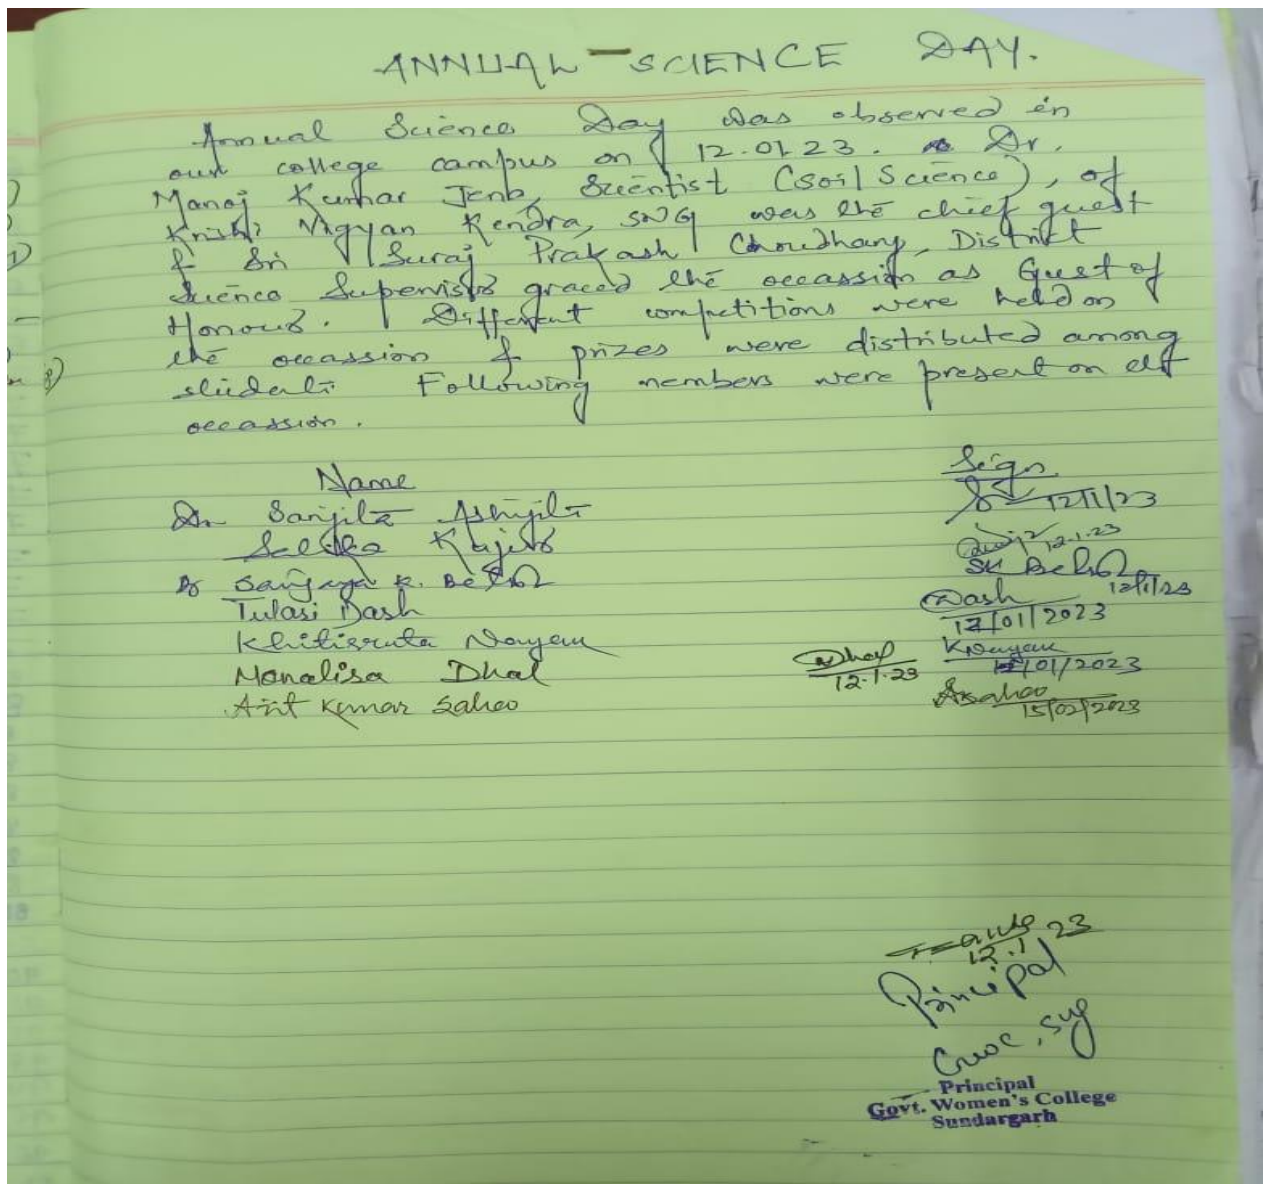 ANNUAL - SCIENCE DAY.
Annual Science Day was observed in
our college campus on 12.01.23. Dr.
Manoj Kumar Jena, Scientist (Soil Science), of
Krishi Vigyan Kendra, SNG was the chief guest
& Sri Suraj Prakash Choudhary, District
Science Supervisor graced the occassion as Guest of
Honour. Different competitions were held on
the occassion & prizes were distributed among
students. Following members were present on the
occassion.
Name Sign
Dr. Sanjita 12/1/23
12.1.23
Dr Sanjaya K. Behera SK Behera 12/1/23
Tulasi Dash Dash 12/01/2023
Khitisruta Nayak KNayak 12/01/2023
Monalisa Dhal Dhal 12.1.23
Ajit Kumar Sahoo Asahoo 15/02/2023
12.1.23
Principal
GWC, SNG
Principal
Govt. Women's College
Sundargarh